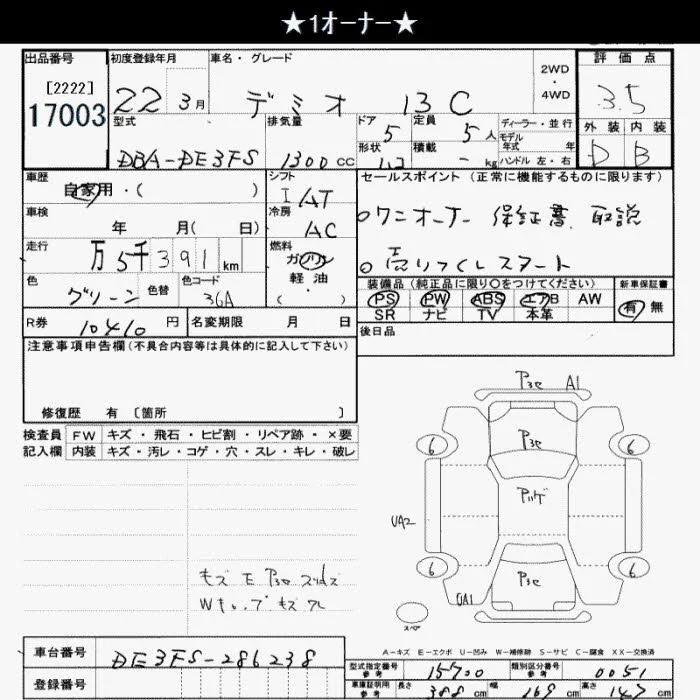 ★1オーナー★
出品番号 初度登録年月 車名・グレード 2WD・4WD 評価点
[2222]
17003 22 3月 デミオ 13C 3.5
型式 排気量 ドア 定員 ディーラー・並行 外装 内装
DBA-DE3FS 1300cc 5 5人 モデル年式 年 D B
形状 積載 - kg ハンドル 左・右
車歴 シフト セールスポイント(正常に機能するものに限ります)
自家用・( ) IAT
車検 冷房 ワンオーナー 保証書 取説
年 月( 日) AC
走行 燃料 売りつくしスタート
万5千391km ガソリン
軽・油
( )
色 色替 色コード 装備品(純正品に限り○をつけてください) 新車保証書
グリーン 36A PS PW ABS エアB AW 有 無
SR ナビ TV 本革
R券 10410円 名変期限 月 日 後日品
注意事項申告欄(不具合内容等は具体的に記入して下さい)
修復歴 有 〔箇所 〕
検査員 FW キズ・飛石・ヒビ割・リペア跡・×要
記入欄 内装 キズ・汚レ・コゲ・穴・スレ・キレ・破レ
Pヨゼ A1
6 Pヨゼ 6
Pハゲ
UA2
6 Pヨゼ 6
UA1
スペア
A-キズ E-エクボ U-凹み W-補修跡 S-サビ C-腐食 XX-交換済
車台番号 DE3FS-286238
登録番号
型式指定番号 参考 15700 類別区分番号 参考 0051
車庫証明用 参考 長さ 388cm 幅 169cm 高さ 147cm